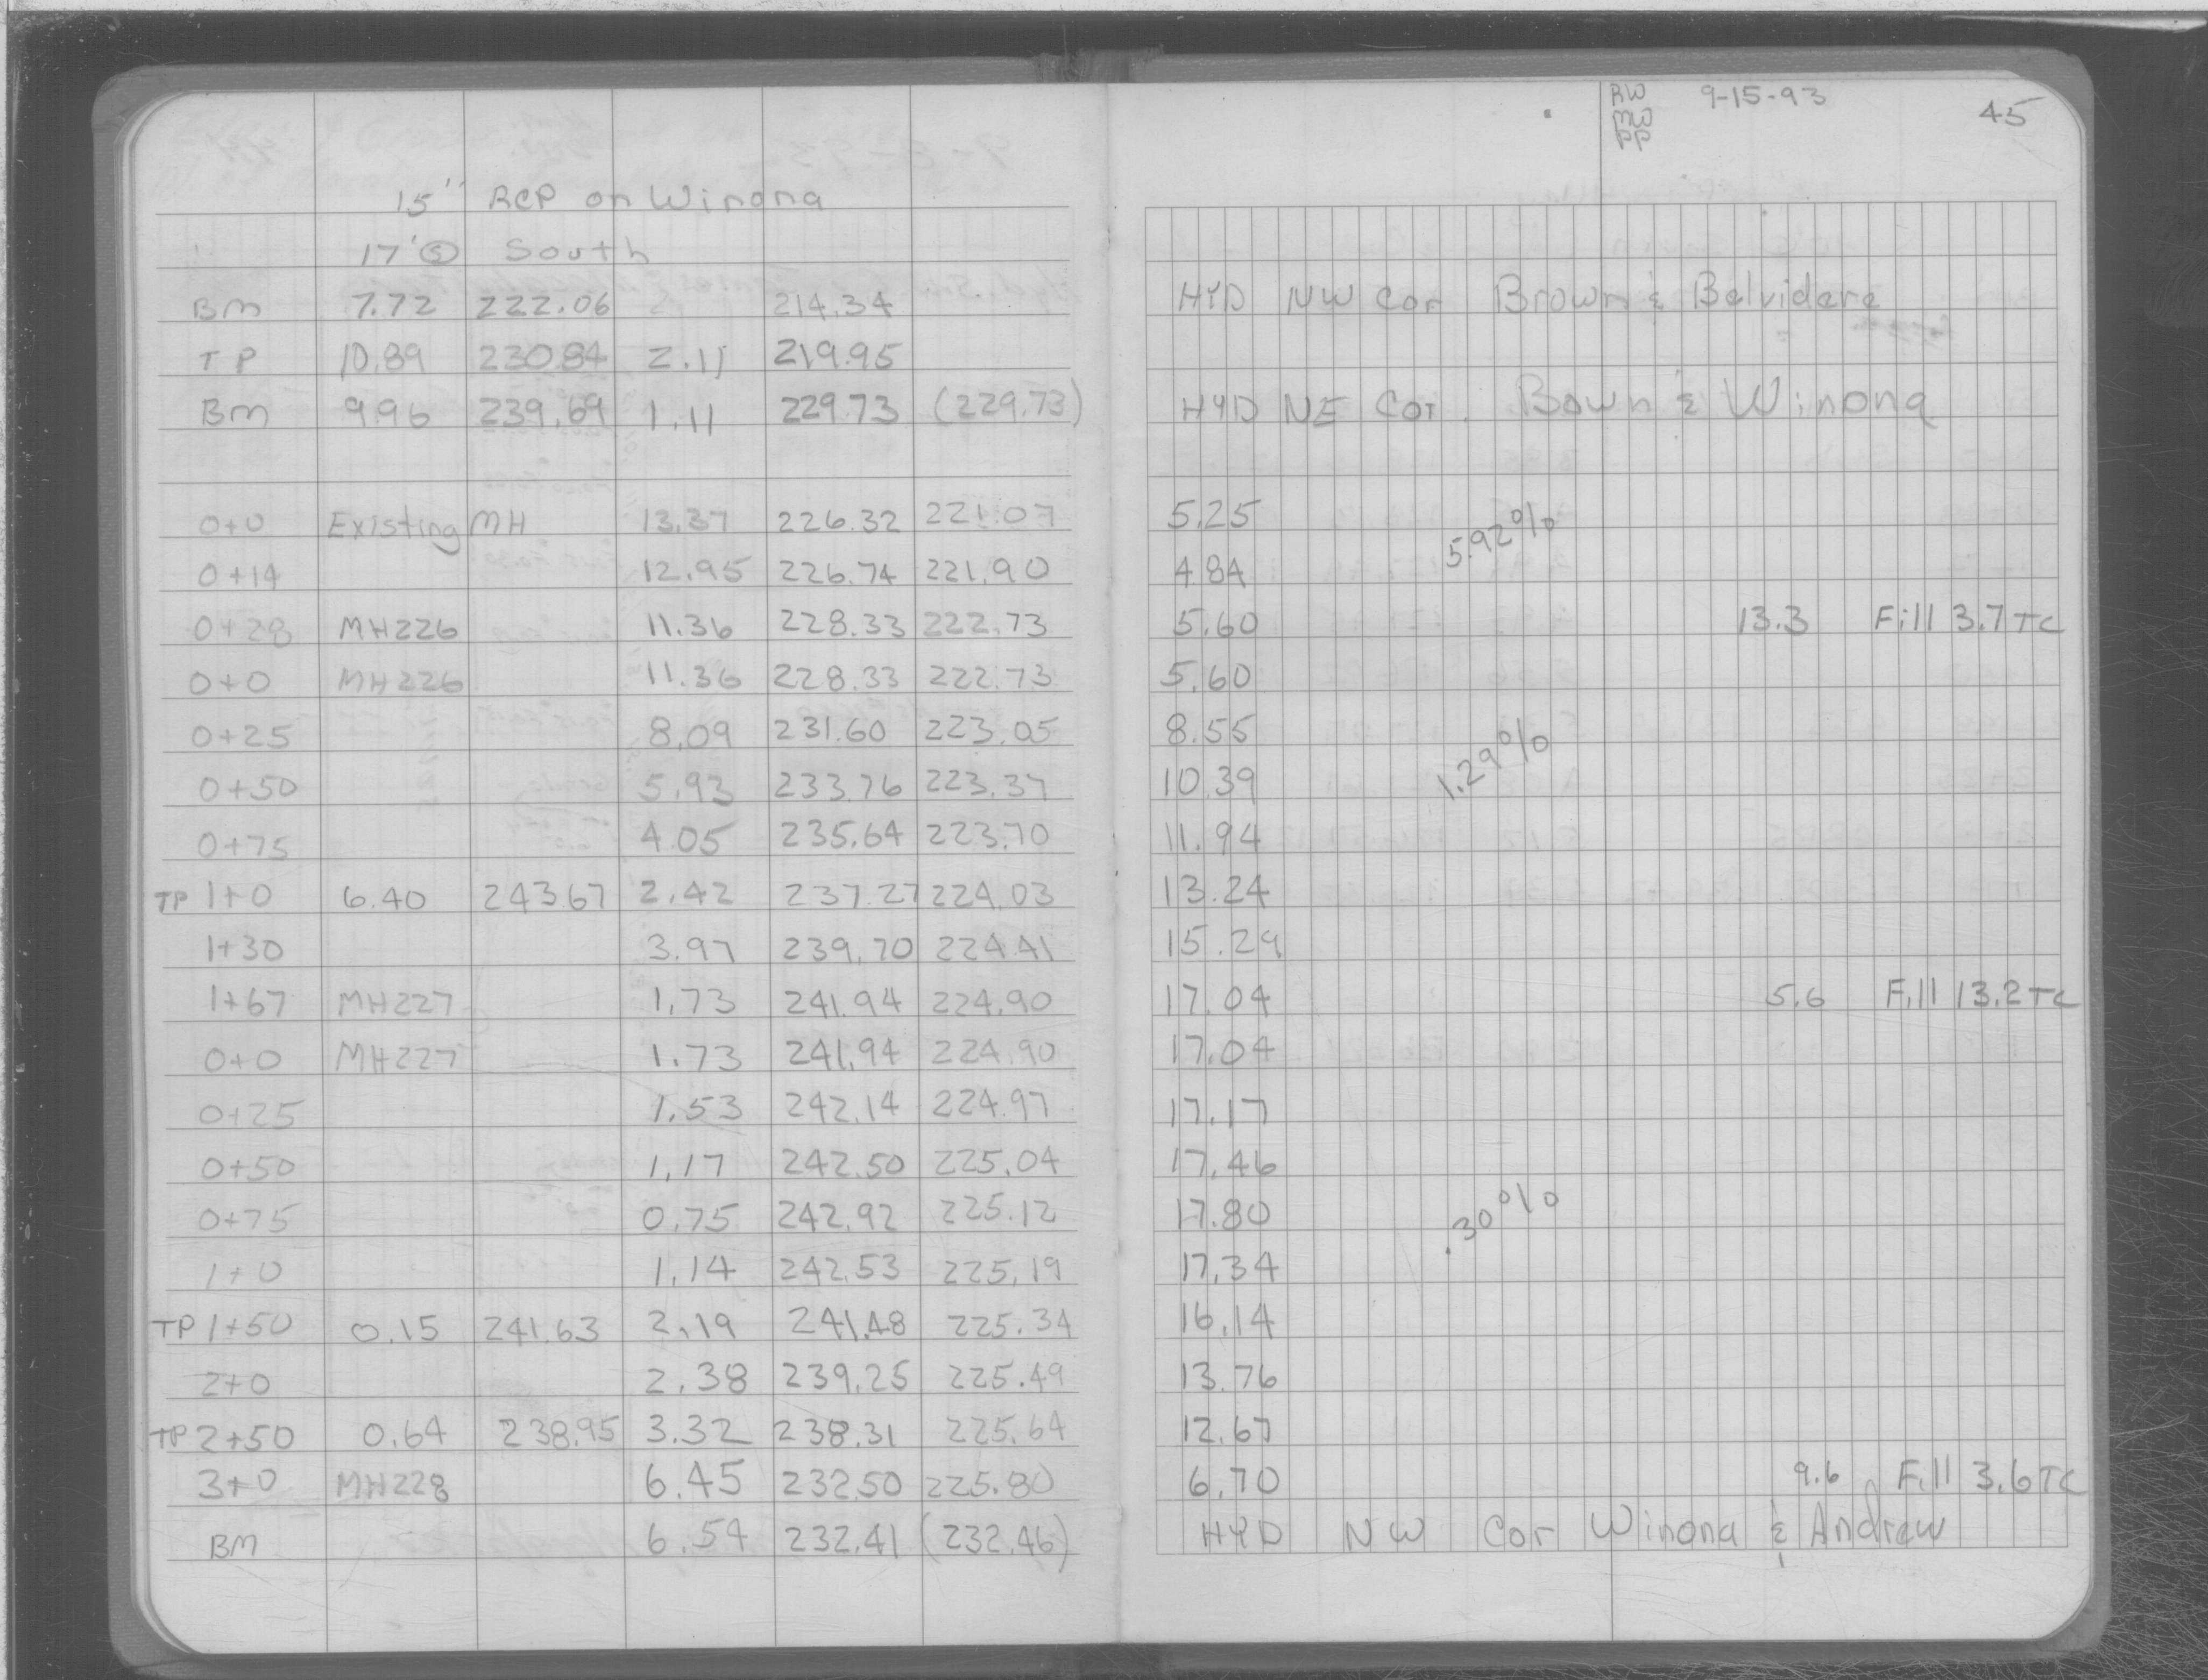 15'' RCP on Winona
17' Ⓢ South
BM 7.72 222.06 214.34
TP 10.89 230.84 2.11 219.95
BM 9.96 239.69 1.11 229.73 (229.73)
0+0 Existing MH 13.37 226.32 221.07
0+14 12.95 226.74 221.90
0+28 MH226 11.36 228.33 222.73
0+0 MH226 11.36 228.33 222.73
0+25 8.09 231.60 223.05
0+50 5.93 233.76 223.37
0+75 4.05 235.64 223.70
TP 1+0 6.40 243.67 2.42 237.27 224.03
1+30 3.97 239.70 224.41
1+67 MH227 1.73 241.94 224.90
0+0 MH227 1.73 241.94 224.90
0+25 1.53 242.14 224.97
0+50 1.17 242.50 225.04
0+75 0.75 242.92 225.12
1+0 1.14 242.53 225.19
TP 1+50 0.15 241.63 2.19 241.48 225.34
2+0 2.38 239.25 225.49
TP 2+50 0.64 238.95 3.32 238.31 225.64
3+0 MH228 6.45 232.50 225.80
BM 6.54 232.41 (232.46)
RW 9-15-93 45
MW
PP
HYD NW Cor Brown & Belvidere
HYD NE Cor. Bown & Winona
5.25
5.92%
4.84
5.60 13.3 Fill 3.7 TC
5.60
8.55
1.29%
10.39
11.94
13.24
15.29
17.04 5.6 Fill 13.2 TC
17.04
17.17
17.46
17.80
.30%
17.34
16.14
13.76
12.67
6.70 9.6 Fill 3.6 TC
HYD NW Cor Winona & Andrew